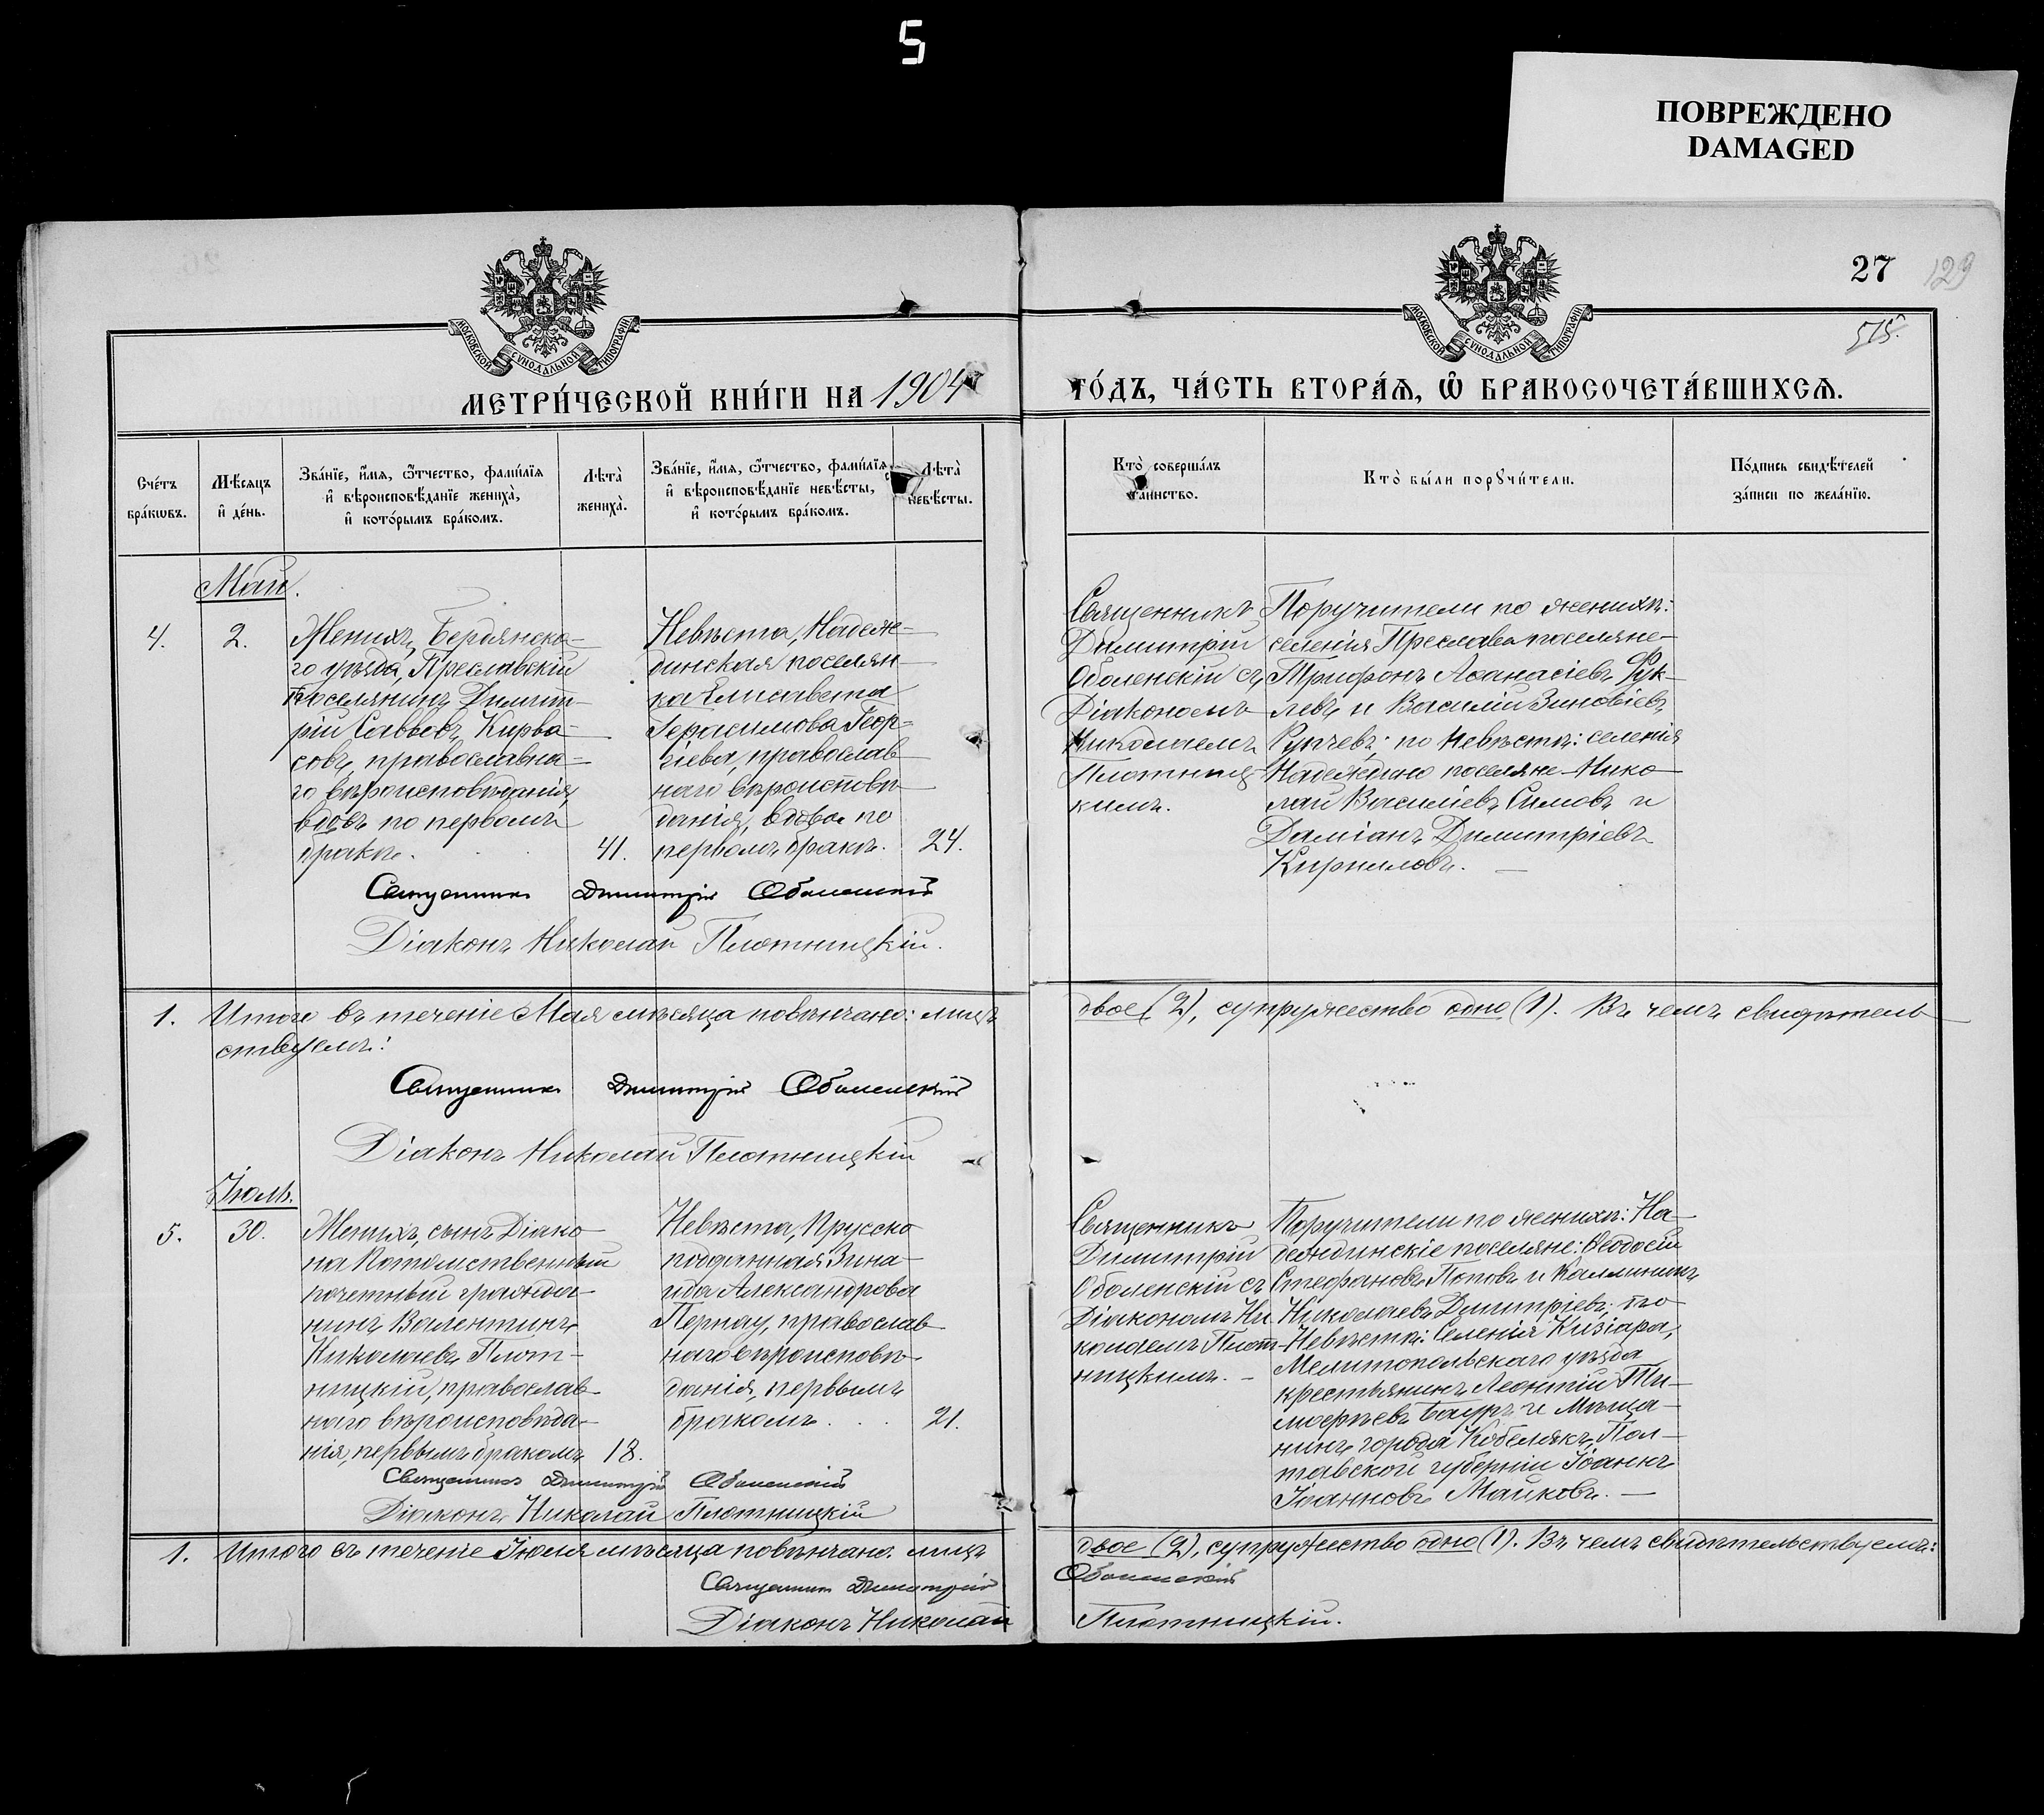 5
ПОВРЕЖДЕНО
DAMAGED
27
129
515.
МОСКОВСКОЙ СѴНОДАЛЬНОЙ ТИПОГРАФІИ
МОСКОВСКОЙ СѴНОДАЛЬНОЙ ТИПОГРАФІИ
МЕТРИ́ЧЕСКОЙ КНИ́ГИ НА 1904
ГО́ДЪ, ЧА́СТЬ ВТОРА́Я, Ѽ БРАКОСОЧЕТА́ВШИХСЯ.
Сче́тъ
бра́кѡвъ.
Мѣ́сяцъ
и҆ де́нь.
Зва́нїе, и҆́мя, ѻ҆́тчество, фамилїя
и҆ вѣроисповѣ́данїе жениха̀,
и҆ кото́рымъ бра́комъ.
Лѣта̀
жениха̀.
Зва́нїе, и҆́мя, ѻ҆́тчество, фамилїя
и҆ вѣроисповѣ́данїе невѣ́сты,
и҆ кото́рымъ бра́комъ.
Лѣта̀
невѣ́сты.
Кто̀ соверша́лъ
таинство.
Кто̀ бы́ли порꙋчи́тели.
По́дпись свидѣ́телей
за́писи по жела́нїю.
Май.
4.
2.
Женихъ, Бердянска-
го уѣзда, Преславскій
поселянинъ Димит-
рій Саввевъ Кирва-
совъ, православна-
го вѣроисповѣданія,
вдовъ по первомъ
бракѣ.
41.
Невѣста, Надеж-
динская поселян-
ка Елисавета
Герасимова Геор-
гіева, православ
наго вѣроисповѣ-
данія, вдова по
первомъ бракѣ.
24.
Священникъ
Димитрій
Оболенскій съ
Діакономъ
Николаемъ
Плотниц
кимъ.
Поручители по женихѣ:
селенія Преслава поселяне-
Трифонъ Аѳанасіевъ Рук-
левъ и Василій Зиновіевъ
Рупчевъ; по невѣстѣ: селенія
Надеждино поселяне Нико-
лай Василіевъ Симовъ и
Даміанъ Димитріевъ
Кирниловъ.
Священникъ Димитрій Оболенскій
Діаконъ Николай Плотницкій.
1. Итого въ теченіе Мая мѣсяца повѣнчано: лицъ
двое (2), супружество одно (1). Въ чемъ свидѣтель-
ствуемъ:
Священникъ Димитрій Оболенскій
Діаконъ Николай Плотницкій
Іюль.
5.
30.
Женихъ, сынъ Діако-
на Потомственный
почетный гражда-
нинъ Валентинъ
Николаевъ Плот-
ницкій, православ-
наго вѣроисповѣда-
нія, первымъ бракомъ
18.
Невѣста, Прусско
подданная Зина-
ида Александрова
Пернау, православ
наго вѣроисповѣ-
данія, первымъ
бракомъ
21.
Священникъ
Димитрій
Оболенскій съ
Діакономъ Ни
колаемъ Плот-
ницкимъ.
Поручители по женихѣ: На-
деждинскіе поселяне: Ѳеодосій
Стефановъ Поповъ и Каллиникъ
Николаевъ Димитріевъ; по
Невѣстѣ: Селенія Кизіара,
Мелитопольскаго уѣзда
крестьянинъ Леонтій Ти-
мофѣевъ Бауръ и Мѣща-
нинъ города Кобелякъ, Пол-
тавской губерніи Іоаннъ
Іоанновъ Майковъ.
Священникъ Димитрій Оболенскій
Діаконъ Николай Плотницкій
1. Итого въ теченіе Іюля мѣсяца повѣнчано: лицъ
двое (2), супружество одно (1). Въ чемъ свидѣтельствуемъ:
Священникъ Димитрій Оболенскій
Діаконъ Николай Плотницкій.